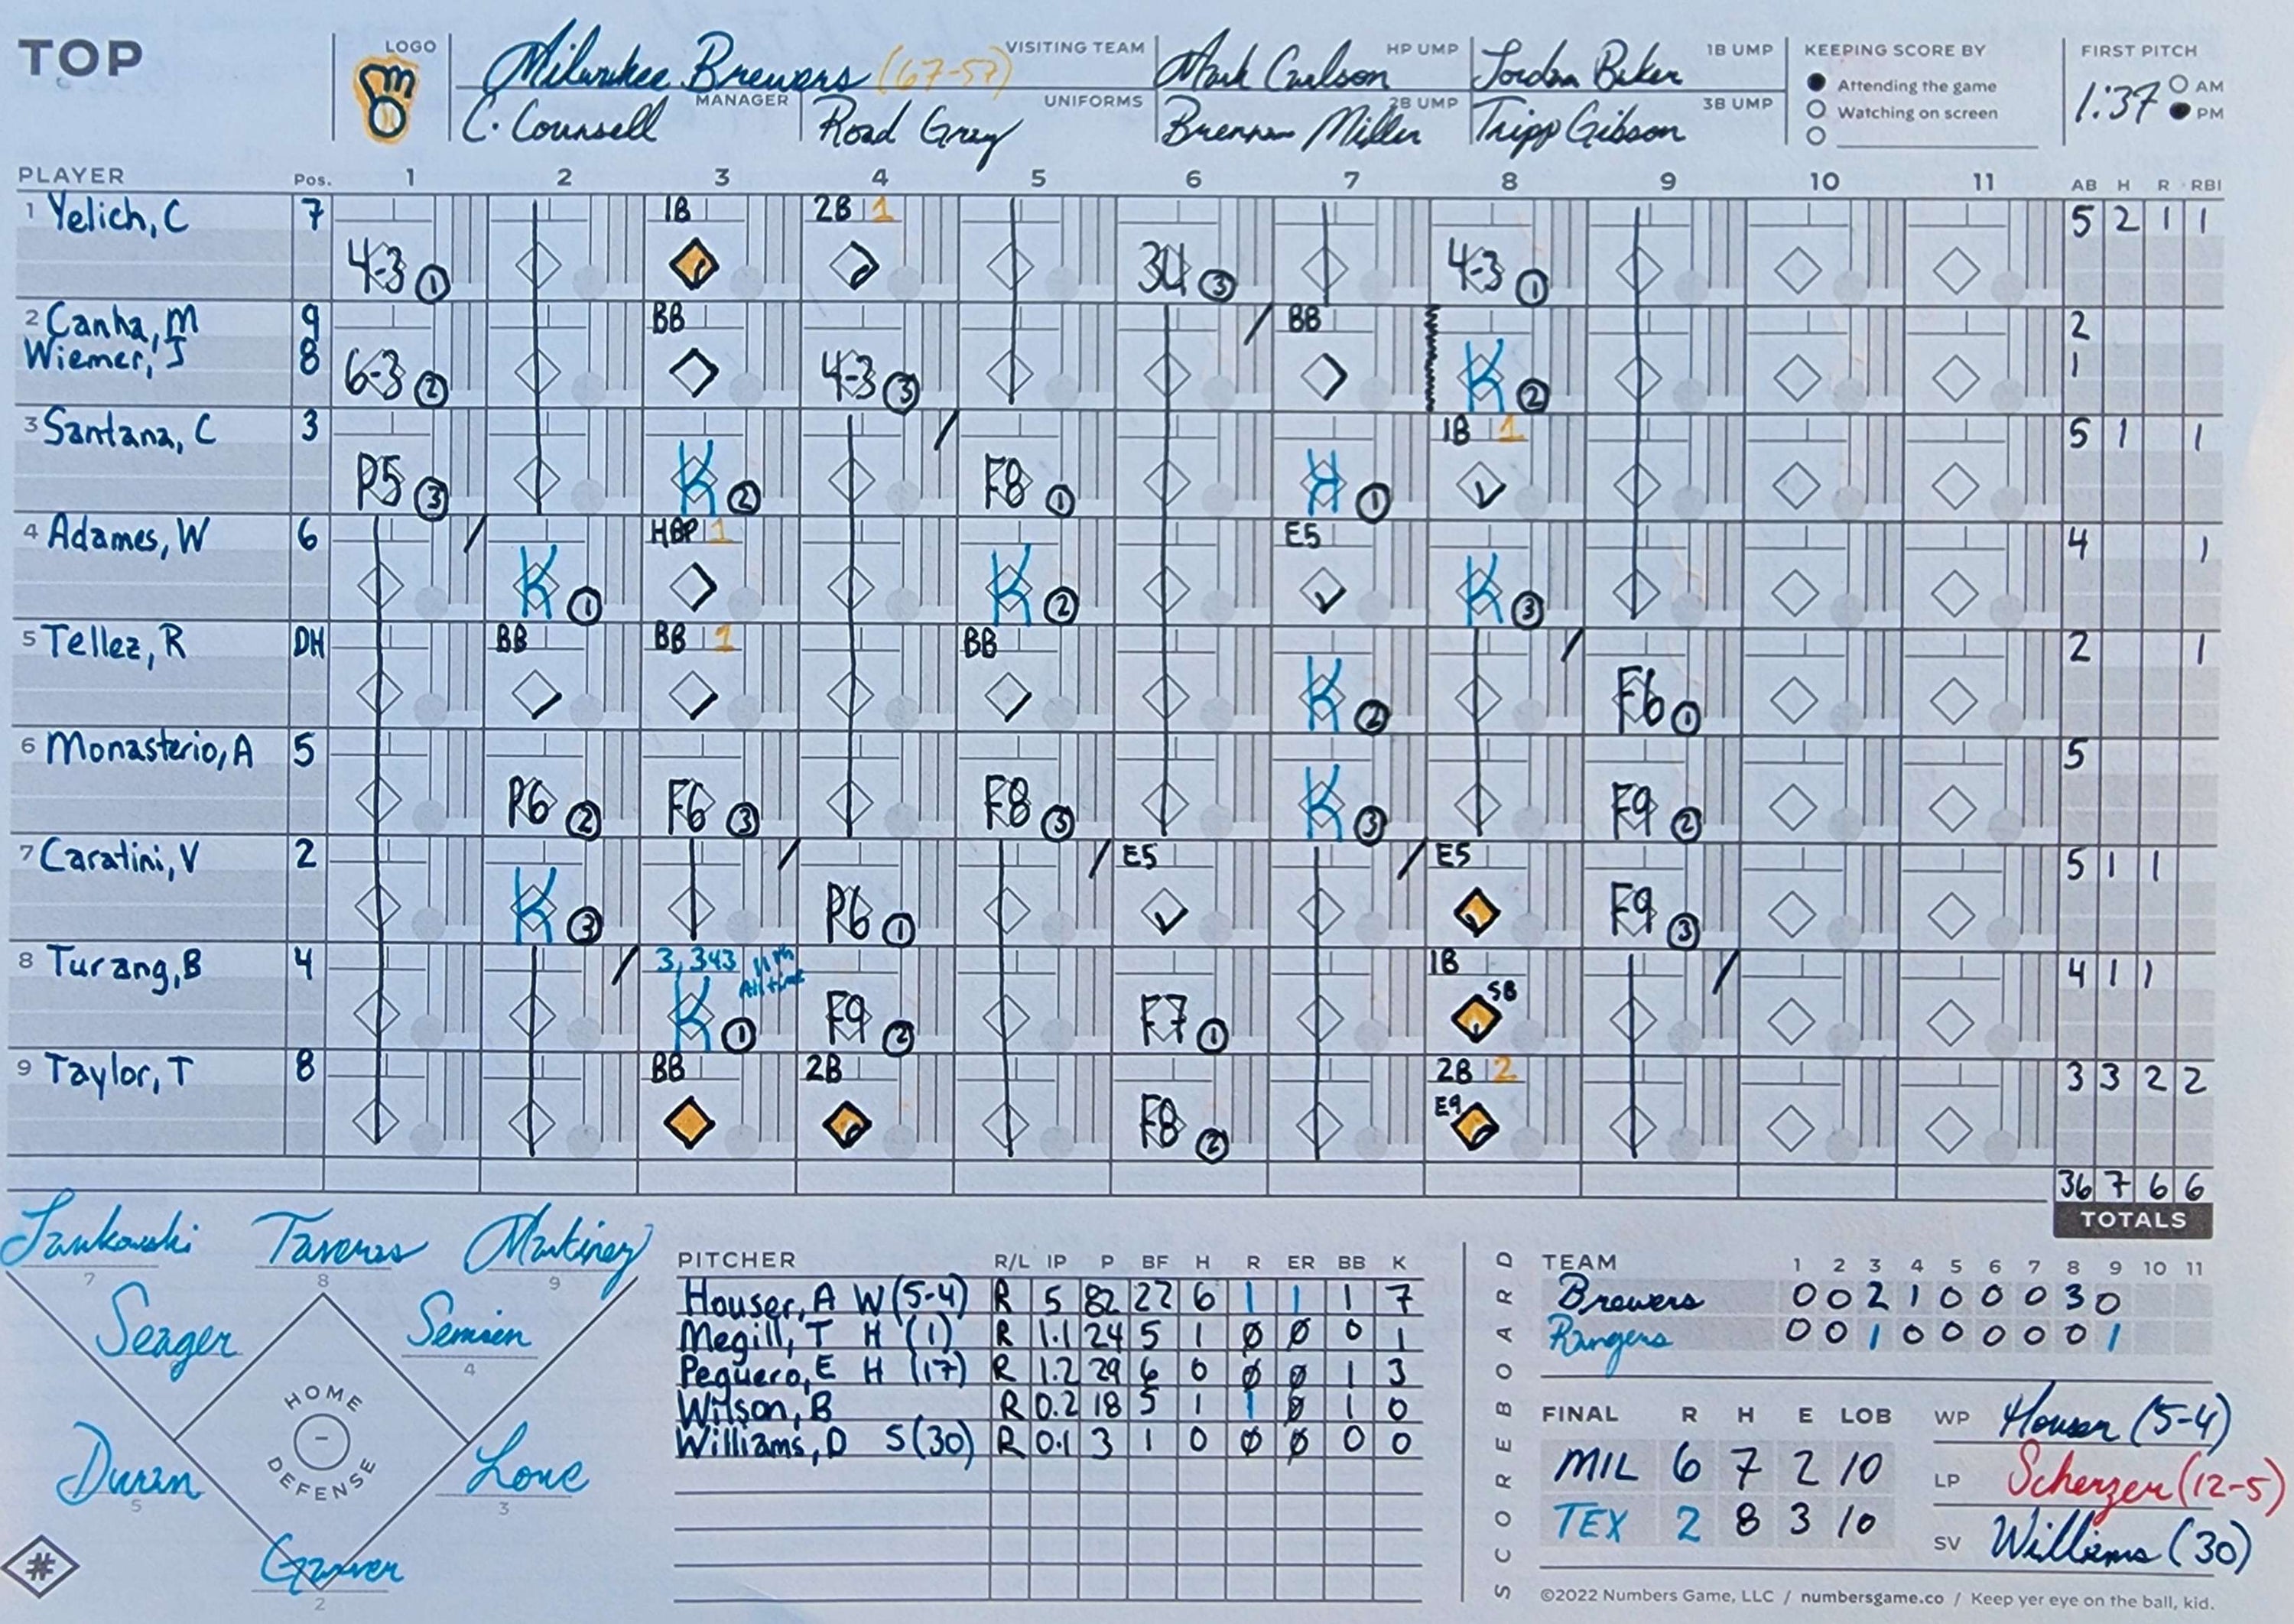 TOP
LOGO
Milwaukee Brewers (67-57) VISITING TEAM
C. Counsell MANAGER Road Grey UNIFORMS
Mark Carlson HP UMP Jordan Baker 1B UMP
Brennan Miller 2B UMP Tripp Gibson 3B UMP
KEEPING SCORE BY
Attending the game
Watching on screen
FIRST PITCH
1:37 AM PM
PLAYER Pos. 1 2 3 4 5 6 7 8 9 10 11 AB H R RBI
1 Yelich, C 7 4-3 ① 1B 2B 1 3U ③ 4-3 ① 5 2 1 1
2 Canha, M 9 6-3 ② BB 4-3 ③ BB 2
Wiemer, J 8 K ② 1
3 Santana, C 3 P5 ③ K ② F8 ① K ① 1B 1 5 1 1
4 Adames, W 6 K ① HBP 1 K ② E5 K ③ 4 1
5 Tellez, R DH BB BB 1 BB K ② F6 ① 2 1
6 Monasterio, A 5 P6 ② F6 ③ F8 ③ K ③ F9 ② 5
7 Caratini, V 2 K ③ P6 ① E5 E5 F9 ③ 5 1 1
8 Turang, B 4 3,343 11th All time K ① F9 ② F7 ① 1B SB 4 1 1
9 Taylor, T 8 BB 2B F8 ② 2B 2 E9 3 3 2 2
36 7 6 6
TOTALS
Jankowski 7 Taveras 8 Martinez 9
Seager Semien 4
Duran 5 Lowe 3
Garver 2
HOME DEFENSE
#
PITCHER R/L IP P BF H R ER BB K
Houser, A W (5-4) R 5 82 22 6 1 1 1 7
Megill, T H (1) R 1.1 24 5 1 0 0 0 1
Peguero, E H (17) R 1.2 29 6 0 0 0 1 3
Wilson, B R 0.2 18 5 1 1 0 1 0
Williams, D S (30) R 0.1 3 1 0 0 0 0 0
SCOREBOARD
TEAM 1 2 3 4 5 6 7 8 9 10 11
Brewers 0 0 2 1 0 0 0 3 0
Rangers 0 0 1 0 0 0 0 0 1
FINAL R H E LOB
MIL 6 7 2 10
TEX 2 8 3 10
WP Houser (5-4)
LP Scherzer (12-5)
SV Williams (30)
©2022 Numbers Game, LLC / numbersgame.co / Keep yer eye on the ball, kid.